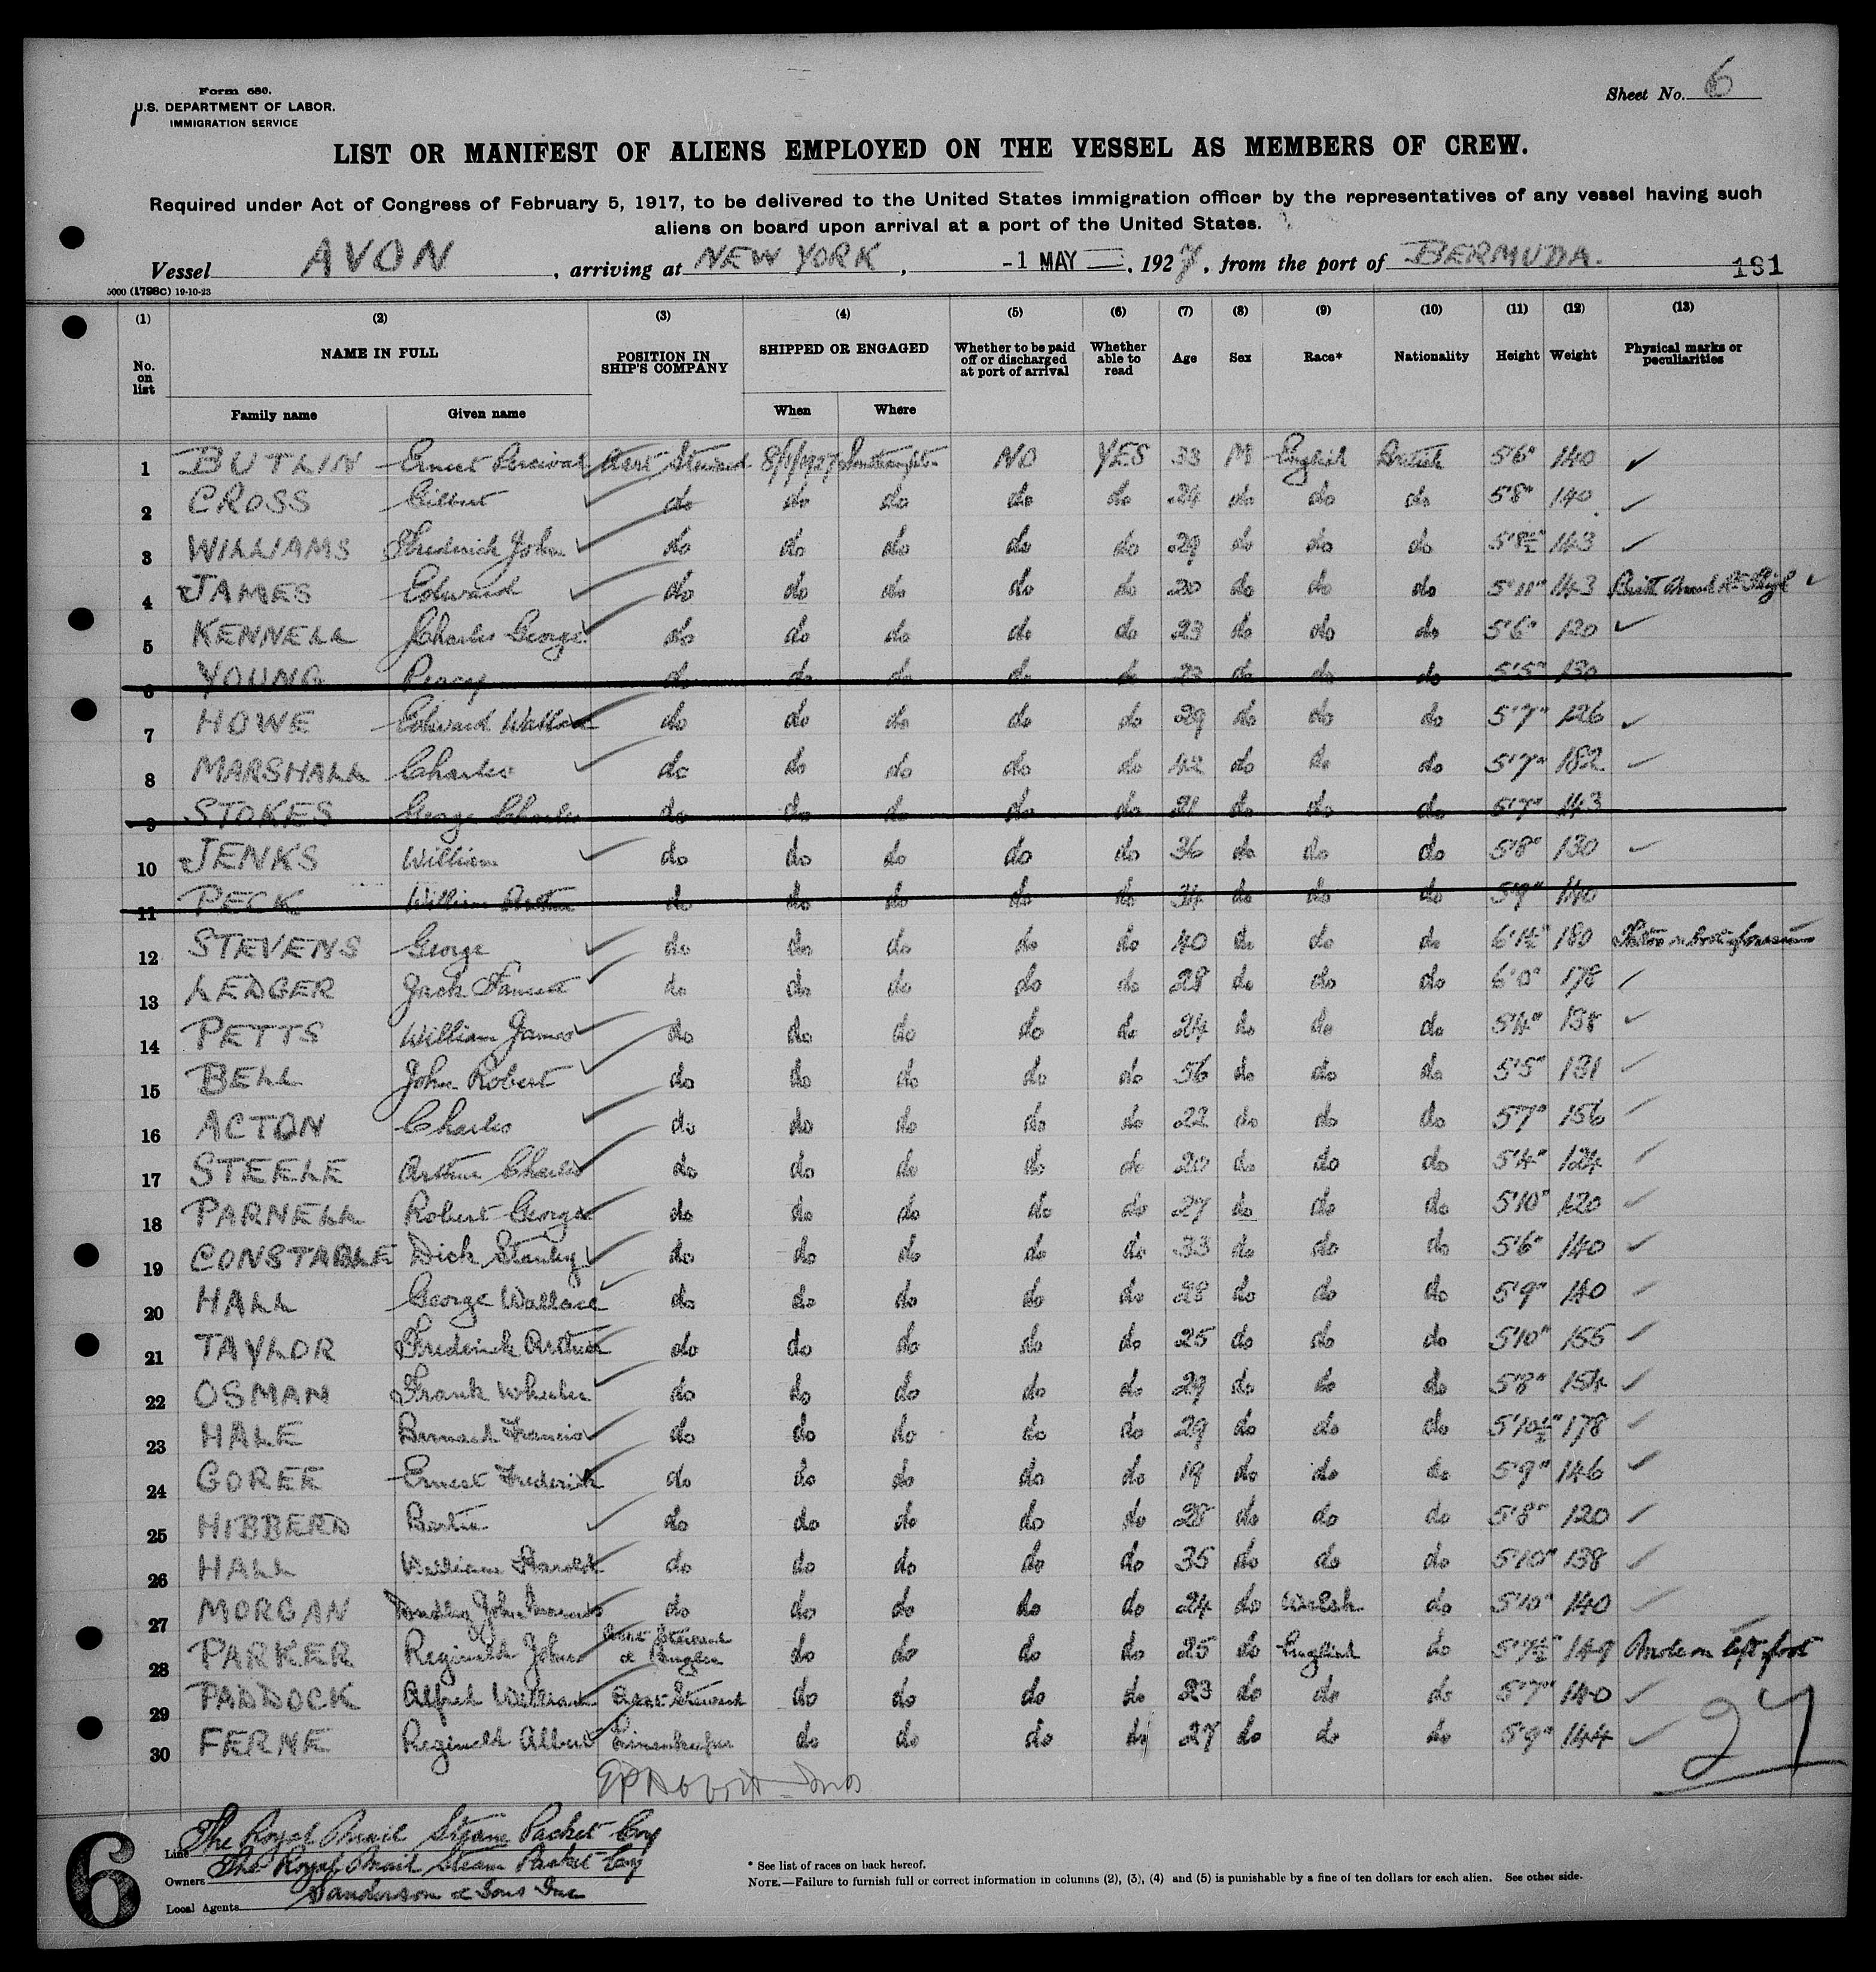 Form 680.
U.S. DEPARTMENT OF LABOR.
IMMIGRATION SERVICE
Sheet No. 6
LIST OR MANIFEST OF ALIENS EMPLOYED ON THE VESSEL AS MEMBERS OF CREW.
Required under Act of Congress of February 5, 1917, to be delivered to the United States immigration officer by the representatives of any vessel having such
aliens on board upon arrival at a port of the United States.
Vessel AVON, arriving at NEW YORK, -1 MAY, 1927, from the port of BERMUDA. 181
5000 (1798C) 19-10-23
(1) (2) (3) (4) (5) (6) (7) (8) (9) (10) (11) (12) (13)
No. on list NAME IN FULL POSITION IN SHIP'S COMPANY SHIPPED OR ENGAGED Whether to be paid off or discharged at port of arrival Whether able to read Age Sex Race* Nationality Height Weight Physical marks or peculiarities
Family name Given name When Where
1 BUTLIN Ernest Percival Asst Steward 8/1/1927 Southampton NO YES 33 M English British 5'6" 140
2 CROSS Gilbert do do do do do 24 do do do 5'8" 140
3 WILLIAMS Frederick John do do do do do 29 do do do 5'8½" 143
4 JAMES Edward do do do do do 20 do do do 5'11" 143 Birth Mark Rt Thigh
5 KENNELL Charles George do do do do do 23 do do do 5'6" 120
6 YOUNG Percy do do do do do 23 do do do 5'5" 130
7 HOWE Edward Wallace do do do do do 29 do do do 5'7" 126
8 MARSHALL Charles do do do do do 42 do do do 5'7" 182
9 STOKES George Charles do do do do do 21 do do do 5'7" 143
10 JENKS William do do do do do 36 do do do 5'8" 130
11 PECK William Arthur do do do do do 34 do do do 5'9" 140
12 STEVENS George do do do do do 40 do do do 6'1½" 180 Tattoo on both forearms
13 LEDGER Jack do do do do do 28 do do do 6'0" 178
14 PETTS William James do do do do do 24 do do do 5'4" 138
15 BELL John Robert do do do do do 56 do do do 5'5" 131
16 ACTON Charles do do do do do 22 do do do 5'7" 156
17 STEELE Arthur Charles do do do do do 20 do do do 5'4" 124
18 PARNELL Robert George do do do do do 27 do do do 5'10" 120
19 CONSTABLE Dick Stanley do do do do do 33 do do do 5'6" 140
20 HALL George Wallace do do do do do 28 do do do 5'9" 140
21 TAYLOR Frederick Arthur do do do do do 25 do do do 5'10" 155
22 OSMAN Frank Wheeler do do do do do 29 do do do 5'8" 154
23 HALE Bernard Francis do do do do do 29 do do do 5'10½" 178
24 GOREE Ernest Frederick do do do do do 19 do do do 5'9" 146
25 HIBBERD Bertie do do do do do 28 do do do 5'8" 120
26 HALL William Harold do do do do do 35 do do do 5'10" 138
27 MORGAN Dudley John do do do do do 24 do Welsh do 5'10" 140
28 PARKER Reginald John Asst Steward & Bugler do do do do 25 do English do 5'7½" 149 Mole on left foot
29 PADDOCK Alfred William Asst Steward do do do do 23 do do do 5'7" 140
30 FERNE Reginald Albert Linenkeeper do do do do 27 do do do 5'9" 144
27
6
Line The Royal Mail Steam Packet Coy
Owners The Royal Mail Steam Packet Coy
Local Agents Sanderson & Sons Inc
* See list of races on back hereof.
NOTE.—Failure to furnish full or correct information in columns (2), (3), (4) and (5) is punishable by a fine of ten dollars for each alien. See other side.